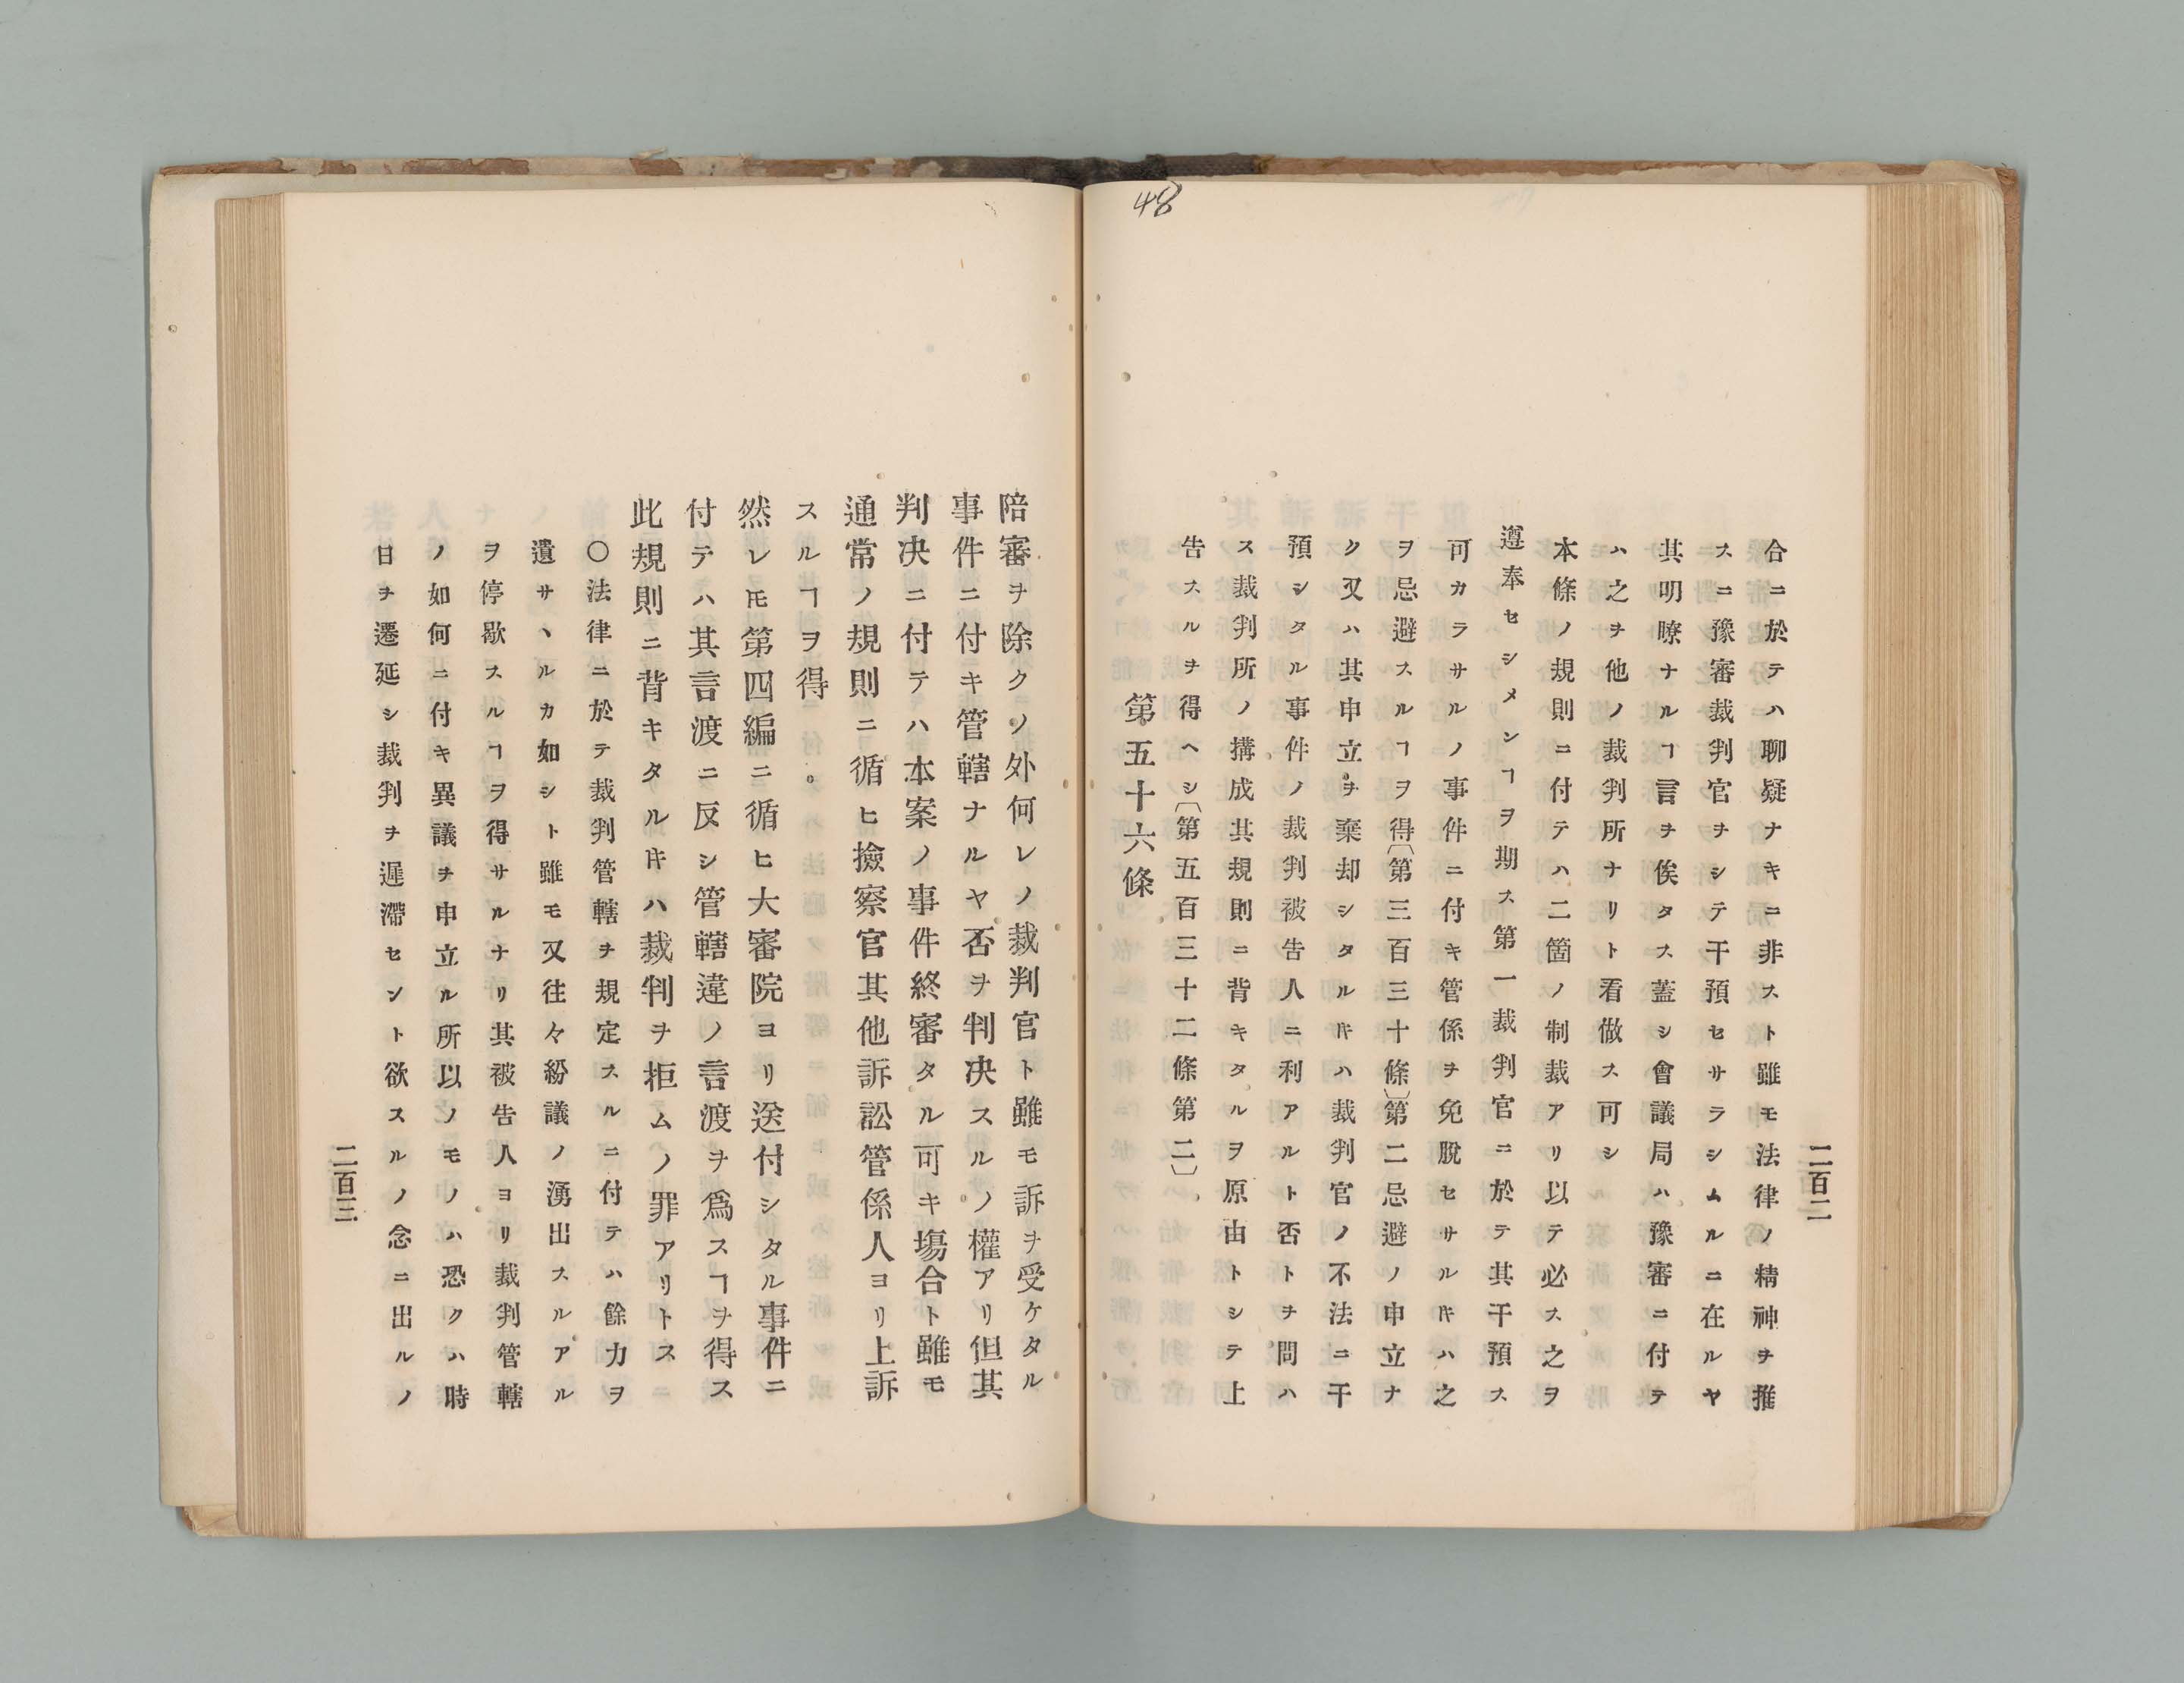 48
二百二
合ニ於テハ聊疑ナキニ非スト雖モ法律ノ精神ヲ推
スニ豫審裁判官ヲシテ干預セサラシムルニ在ルヤ
其明瞭ナルヿ言ヲ俟タス蓋シ會議局ハ豫審ニ付テ
ハ之ヲ他ノ裁判所ナリト看做ス可シ
本條ノ規則ニ付テハ二箇ノ制裁アリ以テ必ス之ヲ
遵奉セシメンヿヲ期ス第一裁判官ニ於テ其干預ス
可カラサルノ事件ニ付キ管係ヲ免脫セサルキハ之
ヲ忌避スルヿヲ得〔第三百三十條〕第二忌避ノ申立ナ
ク又ハ其申立ヲ棄却シタルキハ裁判官ノ不法ニ干
預シタル事件ノ裁判被告人ニ利アルト否トヲ問ハ
ス裁判所ノ搆成其規則ニ背キタルヲ原由トシテ上
告スルヲ得ヘシ〔第五百三十二條第二〕
第五十六條
陪審ヲ除クノ外何レノ裁判官ト雖モ訴ヲ受ケタル
事件ニ付キ管轄ナルヤ否ヲ判决スルノ權アリ但其
判决ニ付テハ本案ノ事件終審タル可キ塲合ト雖モ
通常ノ規則ニ循ヒ撿察官其他訴訟管係人ヨリ上訴
スルヿヲ得。
然レ𪜈第四編ニ循ヒ大審院ヨリ送付シタル事件ニ
付テハ其言渡ニ反シ管轄違ノ言渡ヲ爲スヿヲ得ス
此規則ニ背キタルキハ裁判ヲ拒ムノ罪アリトス
〇法律ニ於テ裁判管轄ヲ規定スルニ付テハ餘力ヲ
遺サヽルカ如シト雖モ又往々紛議ノ湧出スルアル
ヲ停歇スルヿヲ得サルナリ其被告人ヨリ裁判管轄
ノ如何ニ付キ異議ヲ申立ル所以ノモノハ恐クハ時
日ヲ遷延シ裁判ヲ遲滯セント欲スルノ念ニ出ルノ
二百三